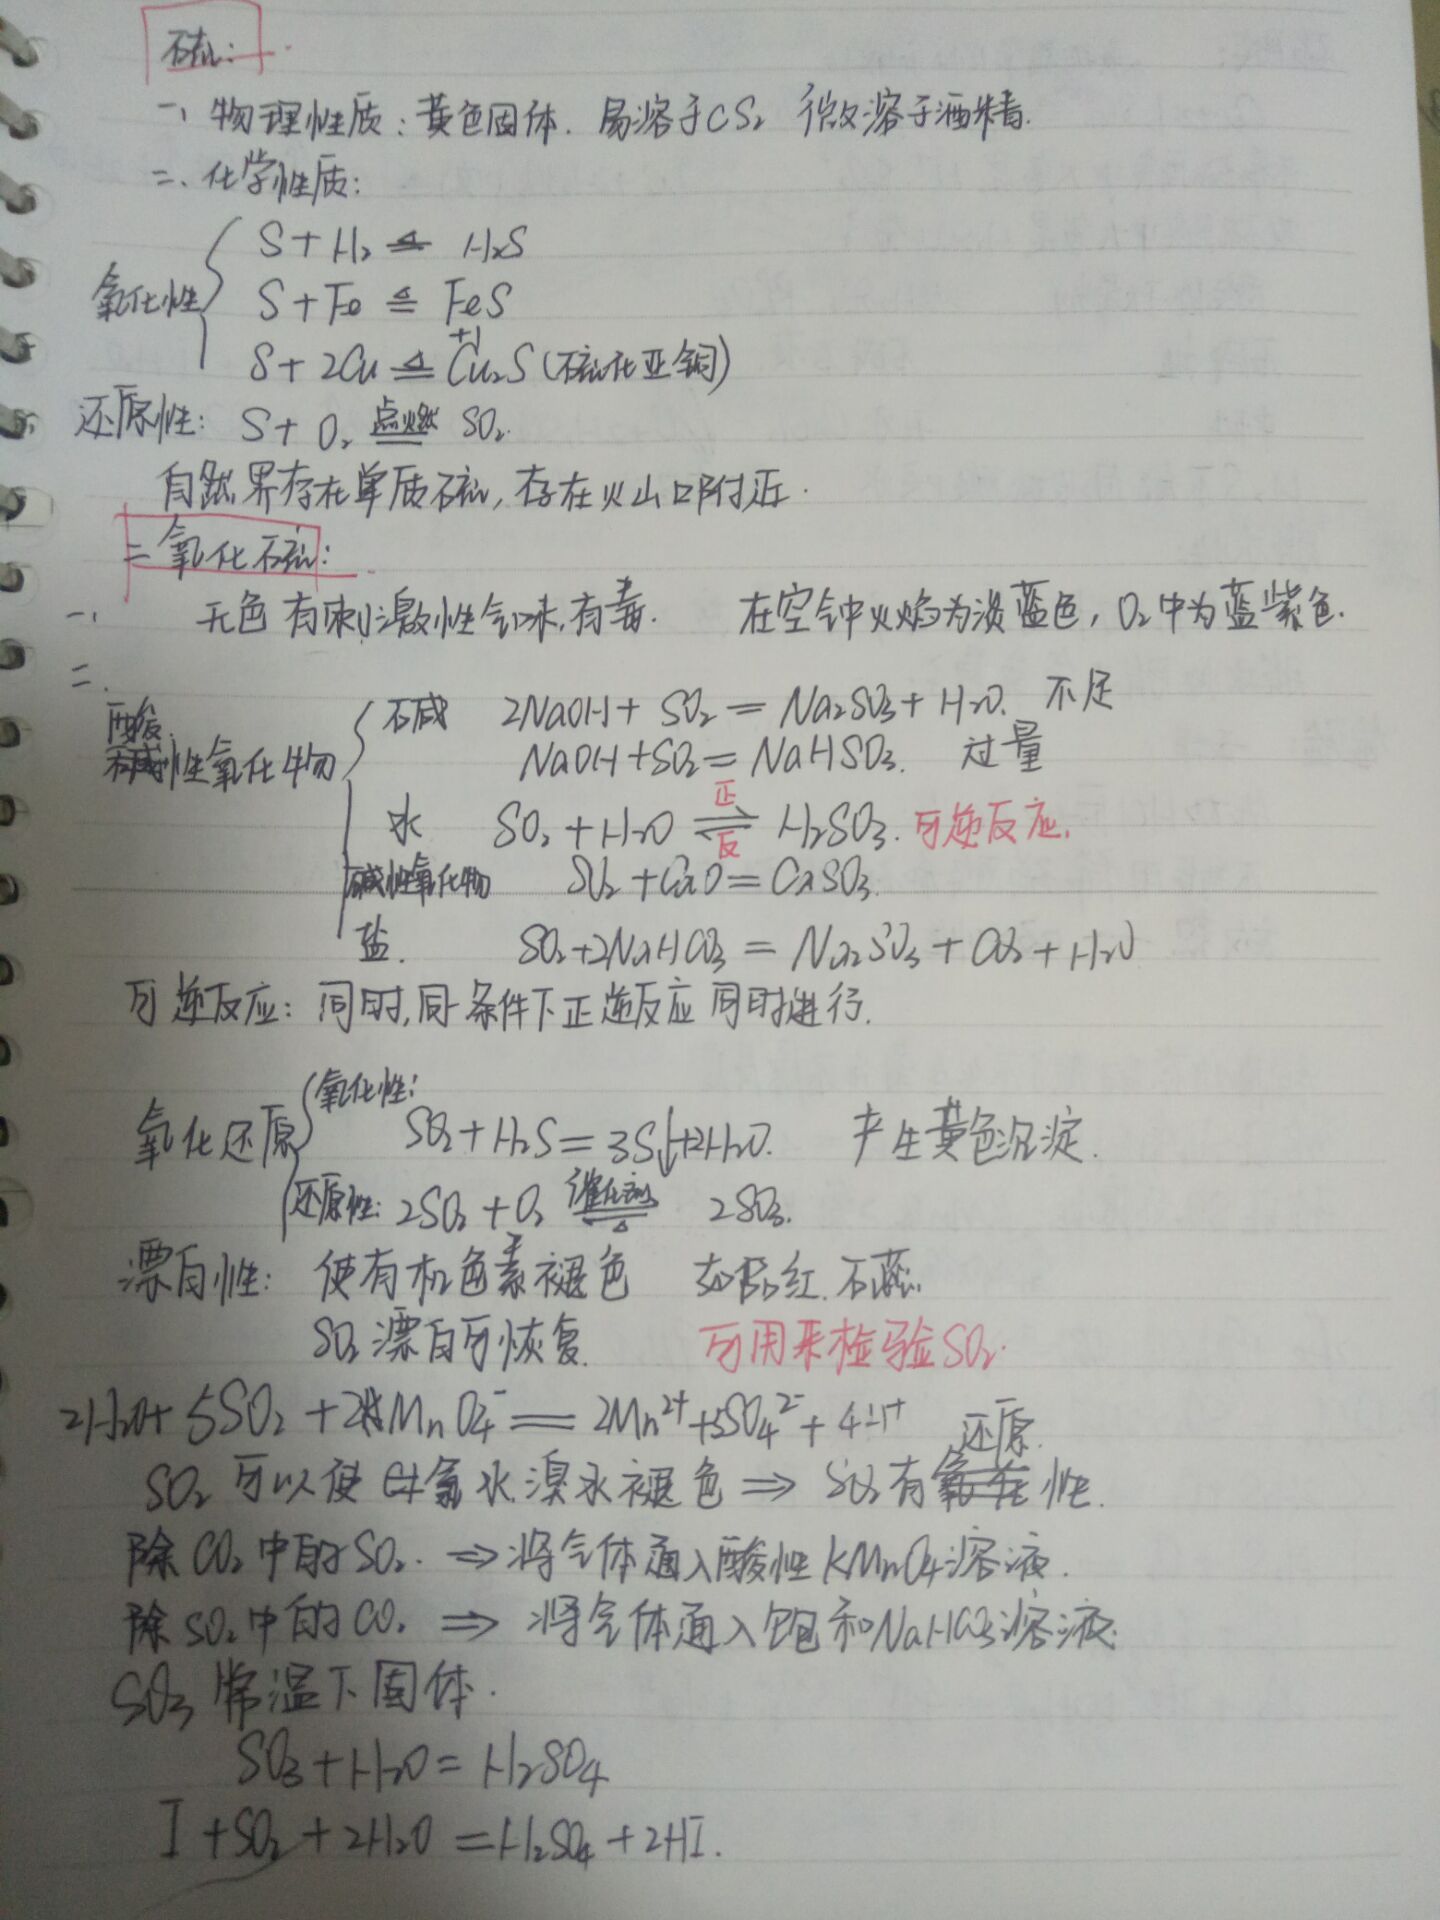 硫:
一、物理性质:黄色固体. 易溶于CS₂ 微溶于酒精.
二、化学性质:
氧化性 S+H₂ ≜ H₂S
S+Fe ≜ FeS
S+2Cu ≜ Cu₂S(硫化亚铜) +1
还原性: S+O₂ 点燃 SO₂.
自然界存在单质硫,存在火山口附近.
二氧化硫:
一、 无色有刺激性气味,有毒. 在空气中火焰为淡蓝色, O₂中为蓝紫色.
二.
酸性氧化物 碱 2NaOH+SO₂=Na₂SO₃+H₂O. 不足
NaOH+SO₂=NaHSO₃. 过量
水 SO₂+H₂O 正⇌反 H₂SO₃. 可逆反应.
碱性氧化物 SO₂+CaO=CaSO₃.
盐. SO₂+2NaHCO₃=Na₂SO₃+CO₂+H₂O
可逆反应: 同时,同条件下正逆反应同时进行.
氧化还原 氧化性: SO₂+H₂S=3S↓+2H₂O. 产生黄色沉淀.
还原性: 2SO₂+O₂ 催化剂 △ 2SO₃.
漂白性: 使有机色素褪色 如品红.石蕊.
SO₂漂白可恢复. 可用来检验SO₂.
2H₂O+5SO₂+2MnO₄⁻=2Mn²⁺+5SO₄²⁻+4H⁺
SO₂可以使 氯水.溴水褪色⇒SO₂有还原性.
除CO₂中的SO₂.⇒将气体通入酸性KMnO₄溶液.
除SO₂中的CO₂⇒将气体通入饱和NaHCO₃溶液.
SO₃常温下固体.
SO₃+H₂O=H₂SO₄
I+SO₂+2H₂O=H₂SO₄+2HI.